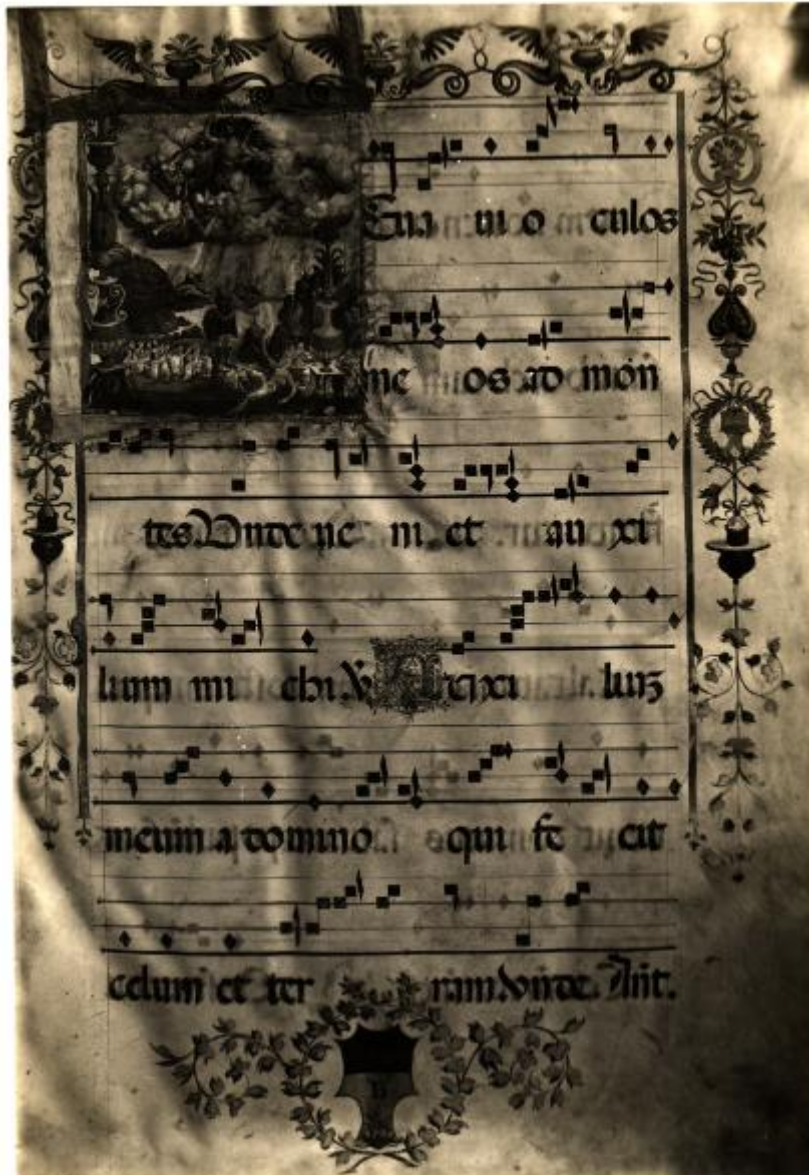 Eua ui o culos
me os ad mon
tes. Unde ue ni et au xi
lium mi chi. V Auxi lium
meum a domino qui fe cit
celum et ter ram. Unde. Ant.